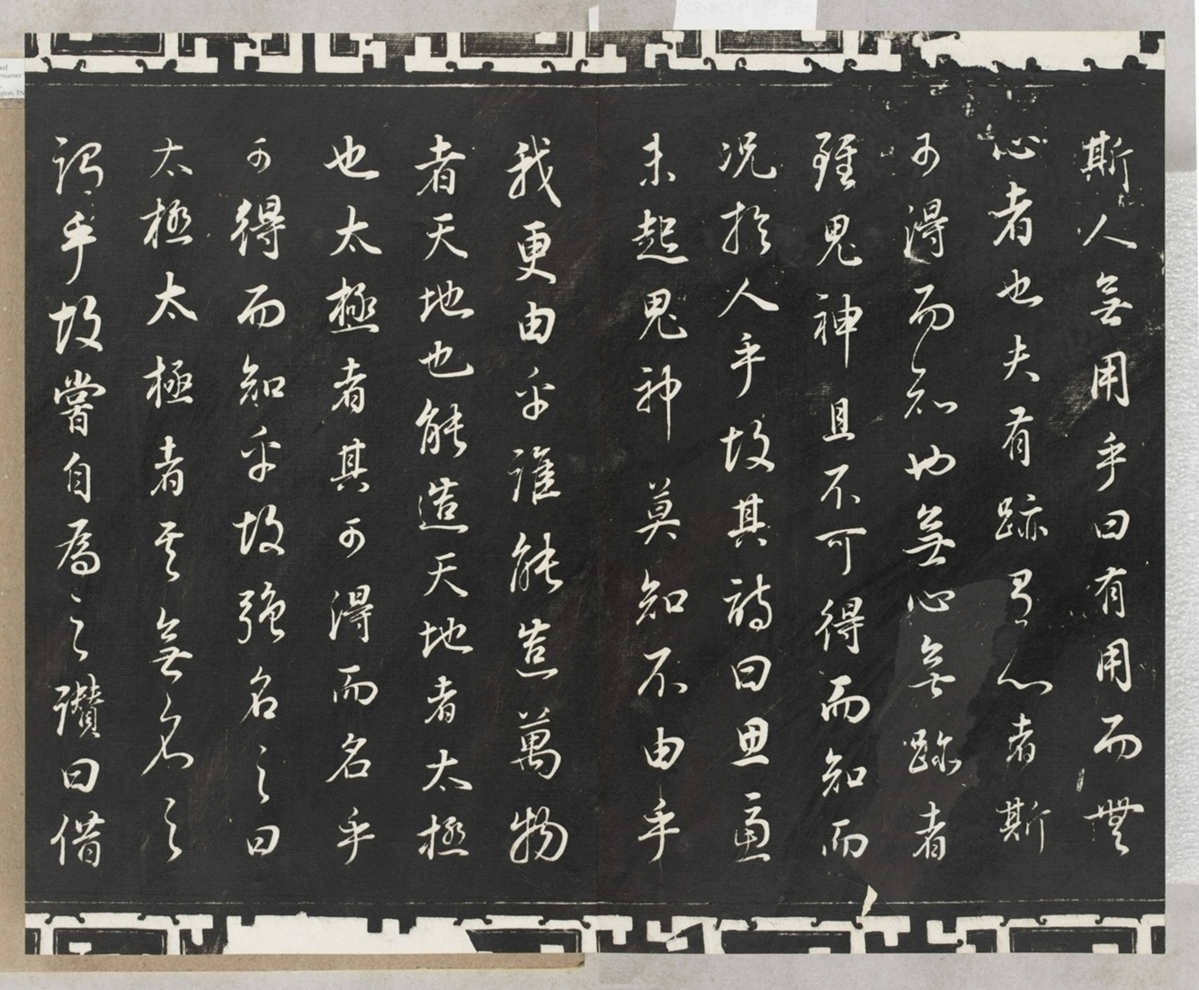 斯人無用乎曰有用而無
心者也夫有跡有心者斯
可得而知也無心無跡者
雖鬼神且不可得而知而
況於人乎故其詩曰思慮
未起鬼神莫知不由乎
我更由乎誰能造萬物
者天地也能造天地者太極
也太極者其可得而名乎
可得而知乎故強名之曰
太極太極者其無名之
謂乎故嘗自為之讚曰借